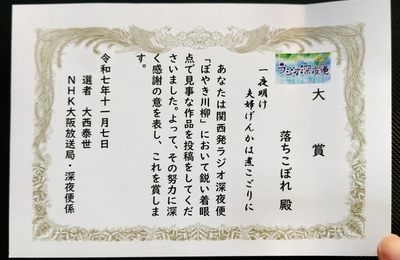 ラジオ深夜便
大賞
落ちこぼれ 殿
一夜明け
夫婦げんかは煮こごりに
あなたは関西発ラジオ深夜便
「ぼやき川柳」において鋭い着眼
点で見事な作品を投稿をしてくだ
さいました。よって、その努力に深
く感謝の意を表し、これを賞しま
す。
令和七年十一月七日
選者 大西泰世
NHK大阪放送局・深夜便係